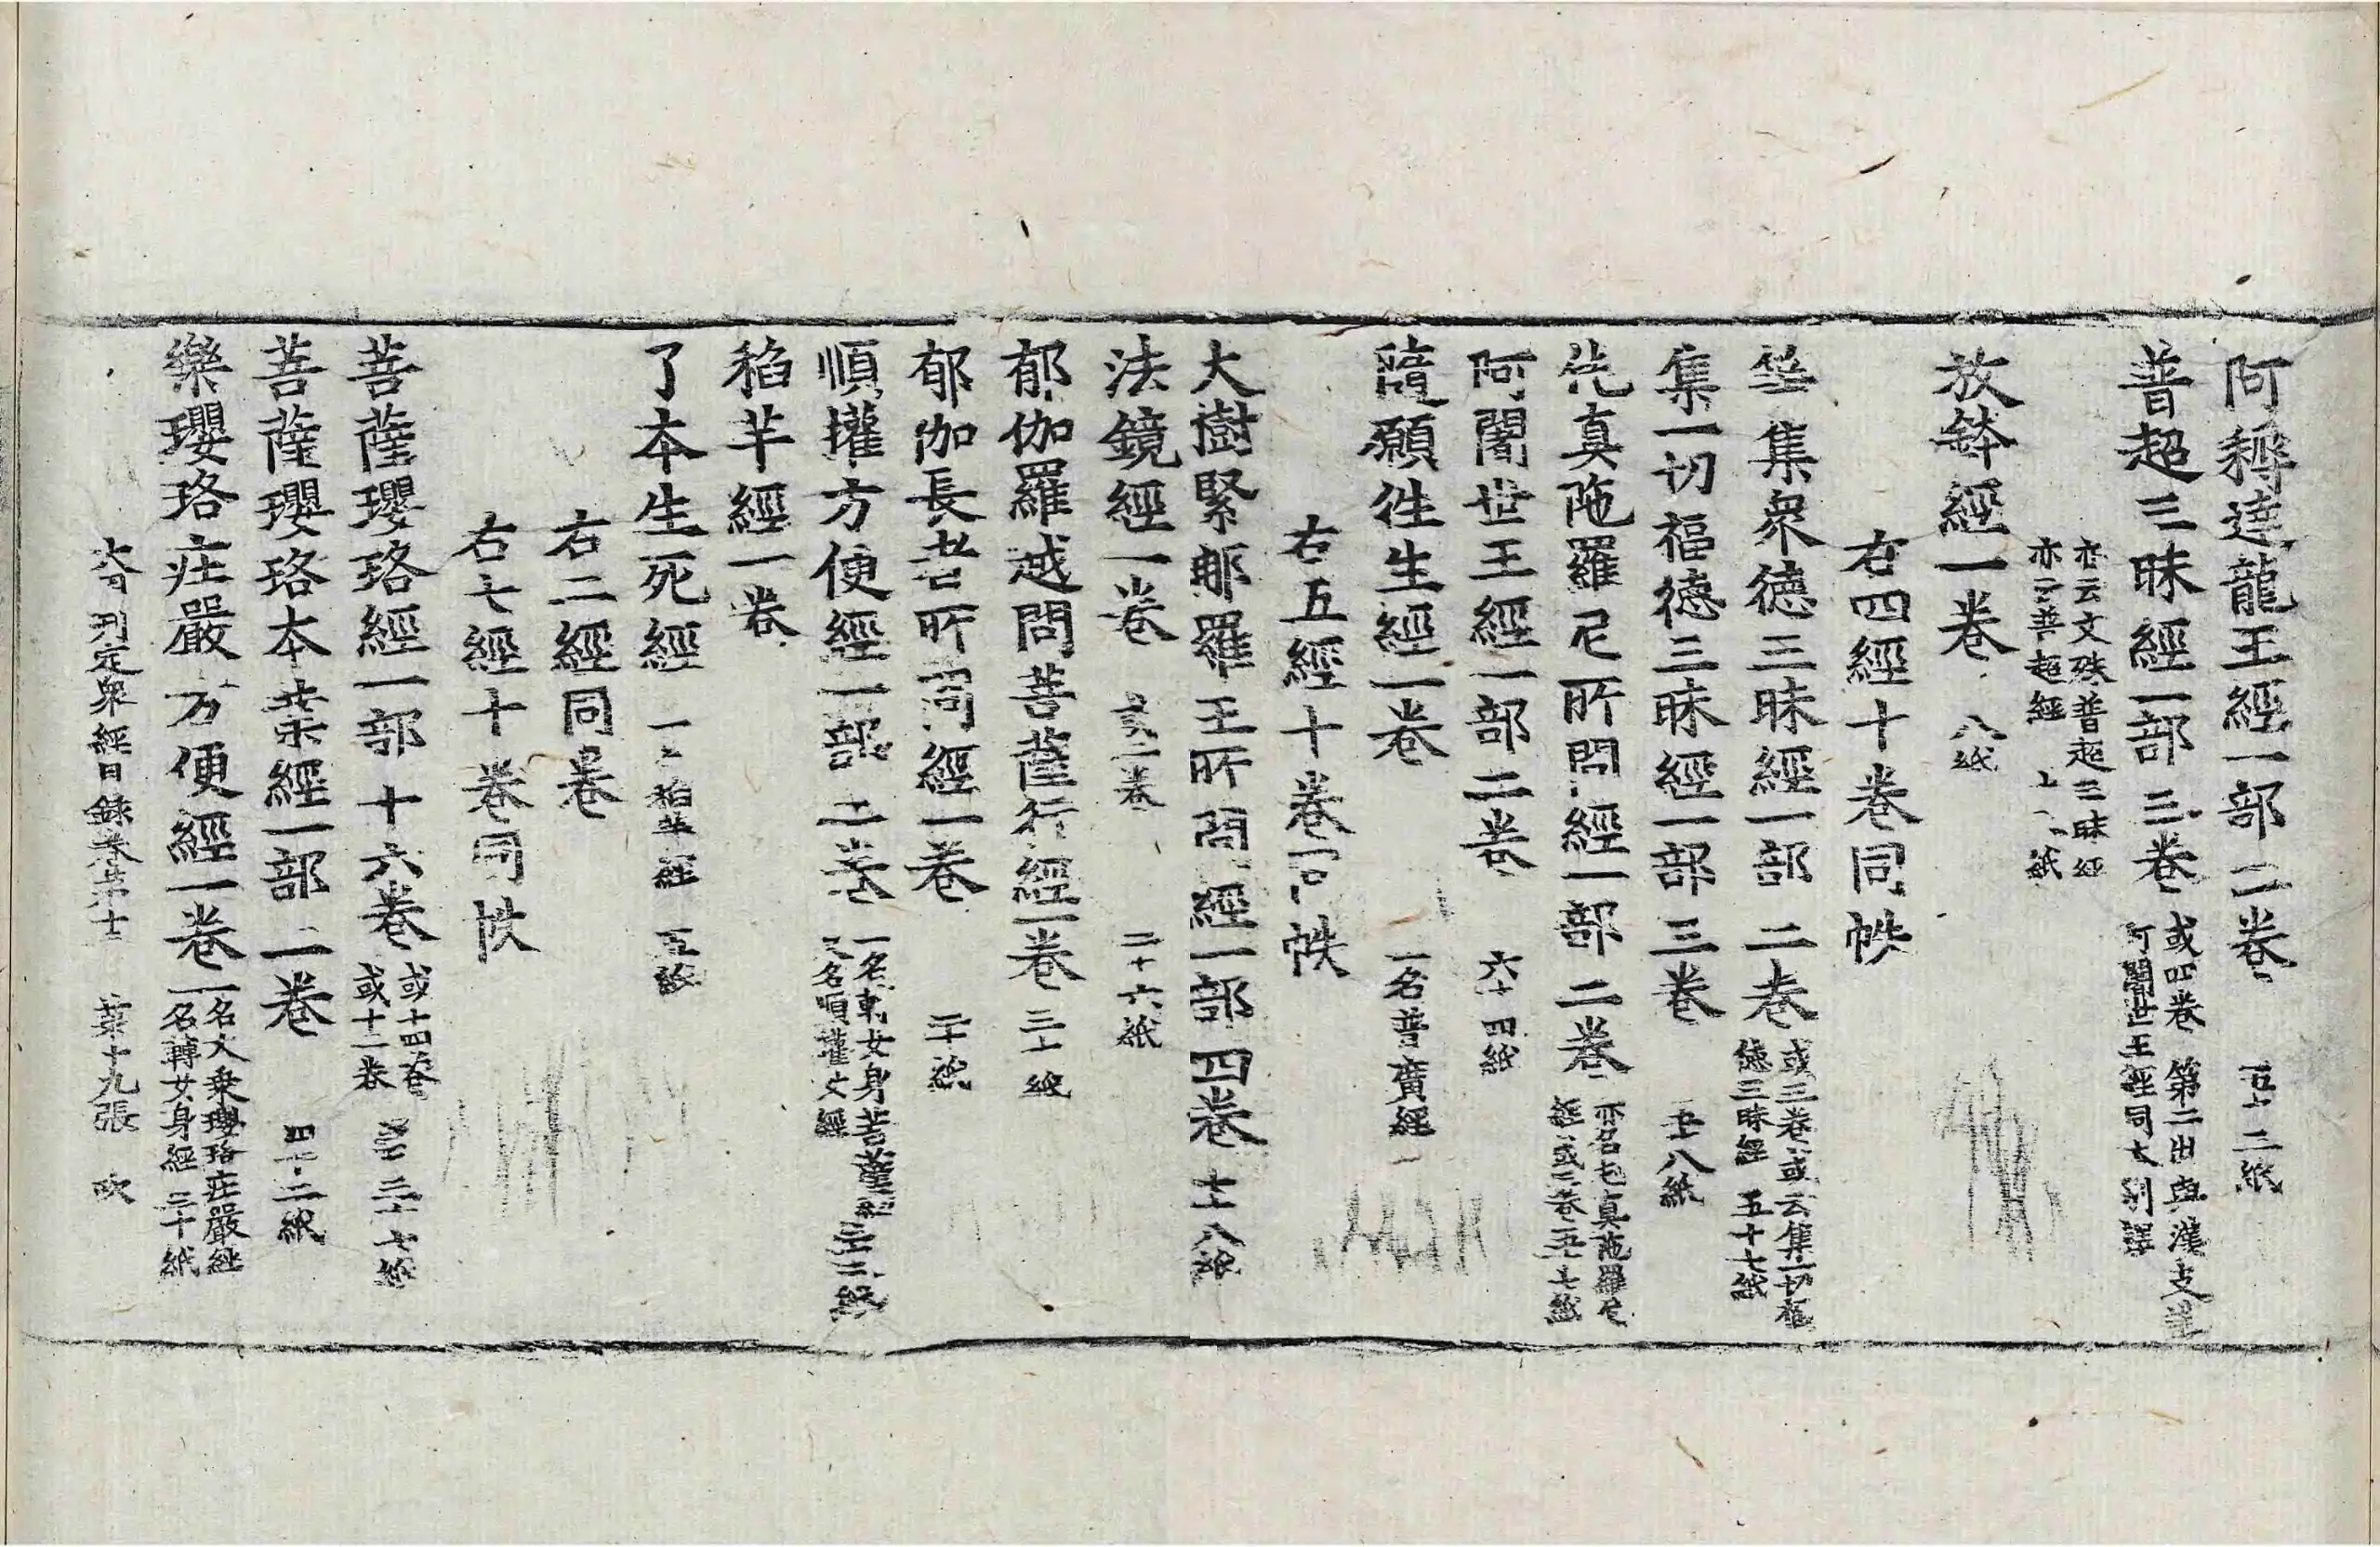 阿耨達龍王經一部二卷 二紙
普超三昧經一部三卷 或四卷 第二出與漢支
阿闍世王經同本別譯
亦云文殊普超三昧經
亦云普超經 紙
放鉢經一卷 八紙
右四經十卷同帙
等集衆德三昧經一部二卷 或三卷或云集一切福
德三昧經 五十七紙
集一切福德三昧經一部三卷 八紙
伅真陁羅尼所問經一部二卷 亦名伅真陁羅尼
經或三卷 七紙
阿闍世王經一部二卷 六十四紙
隨願往生經一卷 一名普廣經
右五經十卷同帙
大樹緊那羅王所問經一部四卷 七十八紙
法鏡經一卷 或二卷 二十六紙
郁伽羅越問菩薩行經一卷 三十紙
郁伽長者所問經一卷 二十紙
順權方便經一部二卷 一名轉女身菩薩經
又名順權女經 三十二紙
稻芉經一卷
了本生死經 一名稻芉經 五紙
右二經同卷
右七經十卷同帙
菩薩瓔珞經一部十六卷 或十四卷
或十二卷 三十七紙
菩薩瓔珞本業經一部二卷 四十二紙
樂瓔珞庄嚴方便經一卷 一名大乗瓔珞庄嚴經
一名轉女身經 三十紙
大周刋定衆經目録卷苐十三 苐十九張 吹